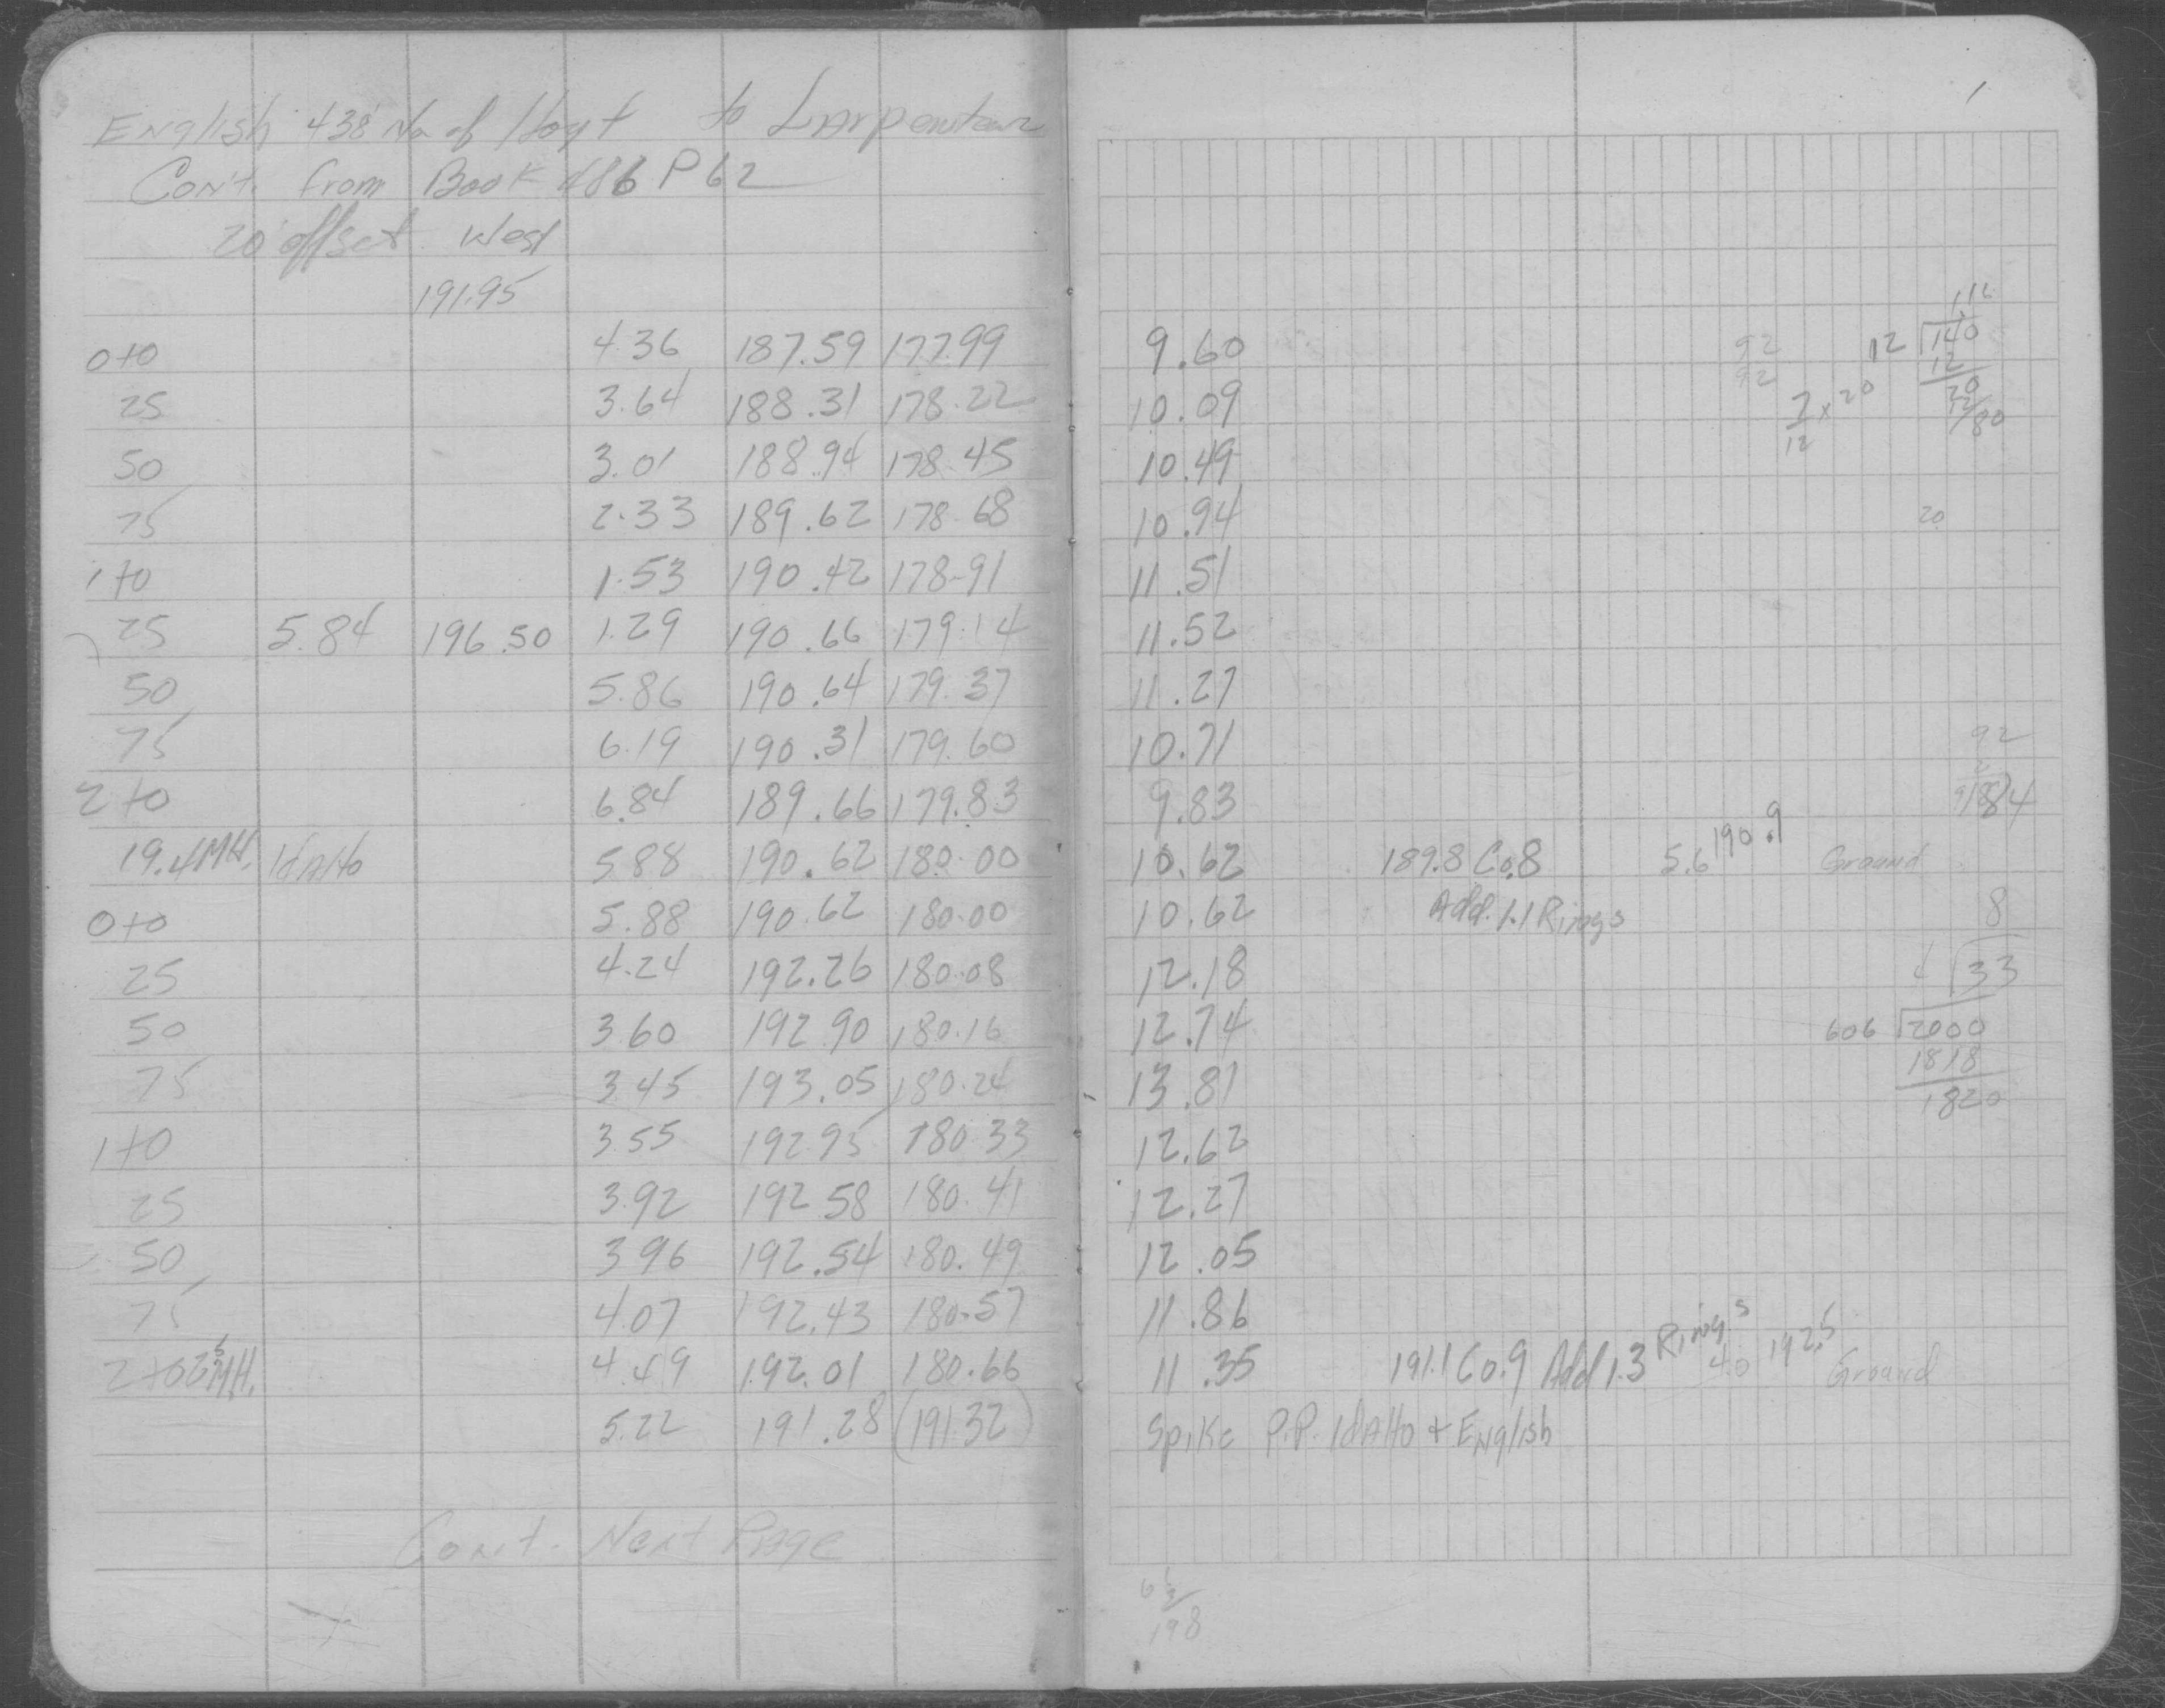 English 438' No of Hoyt to Larpenteur
Con't. from Book 486 P 62
20' offset West
191.95
0+0 4.36 187.59 177.99
25 3.64 188.31 178.22
50 3.01 188.94 178.45
75 2.33 189.62 178.68
1+0 1.53 190.42 178.91
25 5.84 196.50 1.29 190.66 179.14
50 5.86 190.64 179.37
75 6.19 190.31 179.60
2+0 6.84 189.66 179.83
19.4 MH. Idaho 5.88 190.62 180.00
0+0 5.88 190.62 180.00
25 4.24 192.26 180.08
50 3.60 192.90 180.16
75 3.45 193.05 180.24
1+0 3.55 192.95 180.33
25 3.92 192.58 180.41
50 3.96 192.54 180.49
75 4.07 192.43 180.57
2+02.5 MH. 4.49 192.01 180.66
5.22 191.28 (191.32)
Con't. Next Page
1
9.60
10.09
10.49
10.94
11.51
11.52
11.27
10.71
9.83
10.62 189.8 Co.8 5.6 190.9 Ground
10.62 Add 1.1 Rings
12.18
12.74
13.81
12.62
12.27
12.05
11.86
11.35 191.1 Co.9 Add 1.3 Rings 4.0 192.5 Ground
Spike P.P. Idaho + English
92
92
7 x 20
12
1.16
12 140
12
20
12
80
20
92
184
8
4 33
606 2000
1818
1820
198